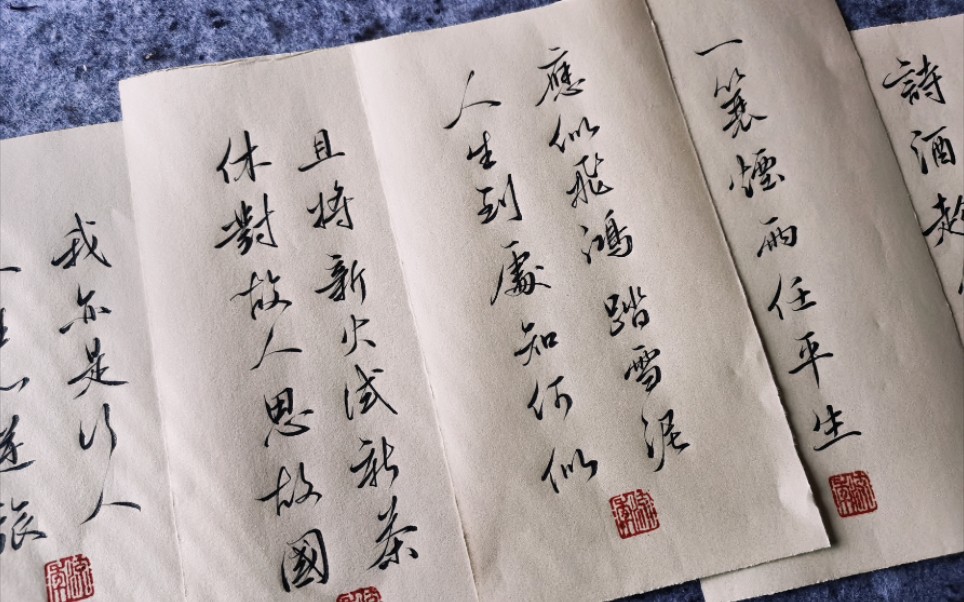 逆旅
我亦是行人
休對故人思故國
且將新火試新茶
人生到處知何似
應似飛鴻踏雪泥
一蓑煙雨任平生
詩酒趁